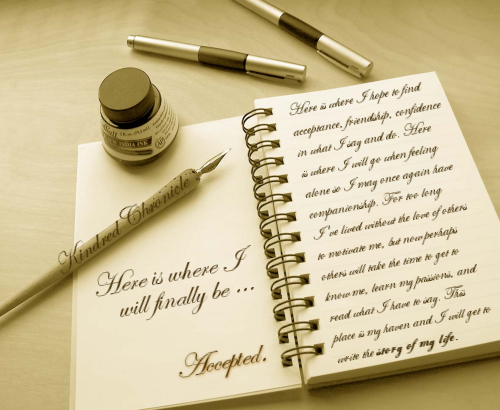 Kindred Chronicle
INDIA INK
Here is where I
will finally be ...
Accepted.
Here is where I hope to find
acceptance, friendship, confidence
in what I say and do. Here
is where I will go when feeling
alone so I may once again have
companionship. For too long
I've lived without the love of others
to motivate me, but now perhaps
others will take the time to get to
know me, learn my passions, and
read what I have to say. This
place is my haven and I will get to
write the story of my life.